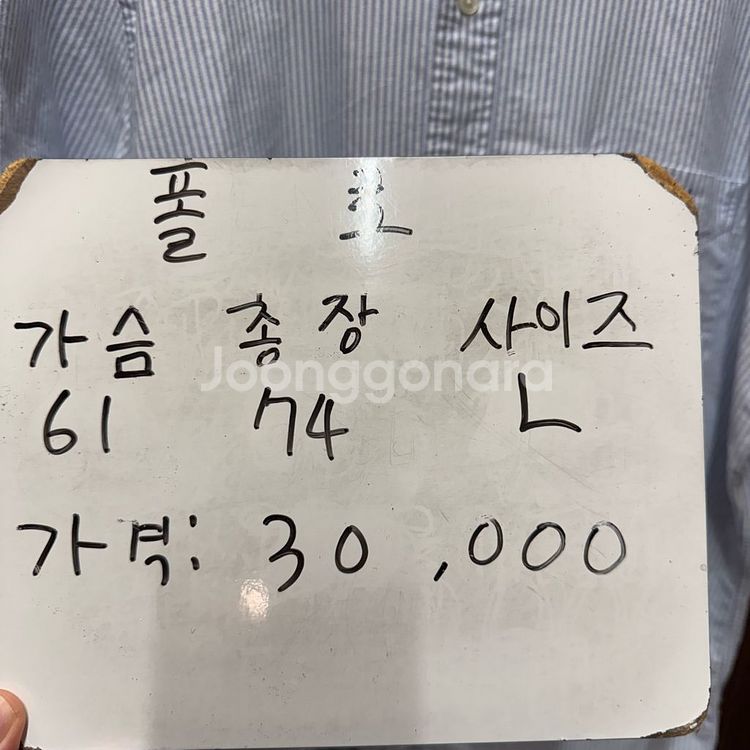 폴로
가슴 총장 사이즈
Joonggonara
61 74 L
가격: 30,000